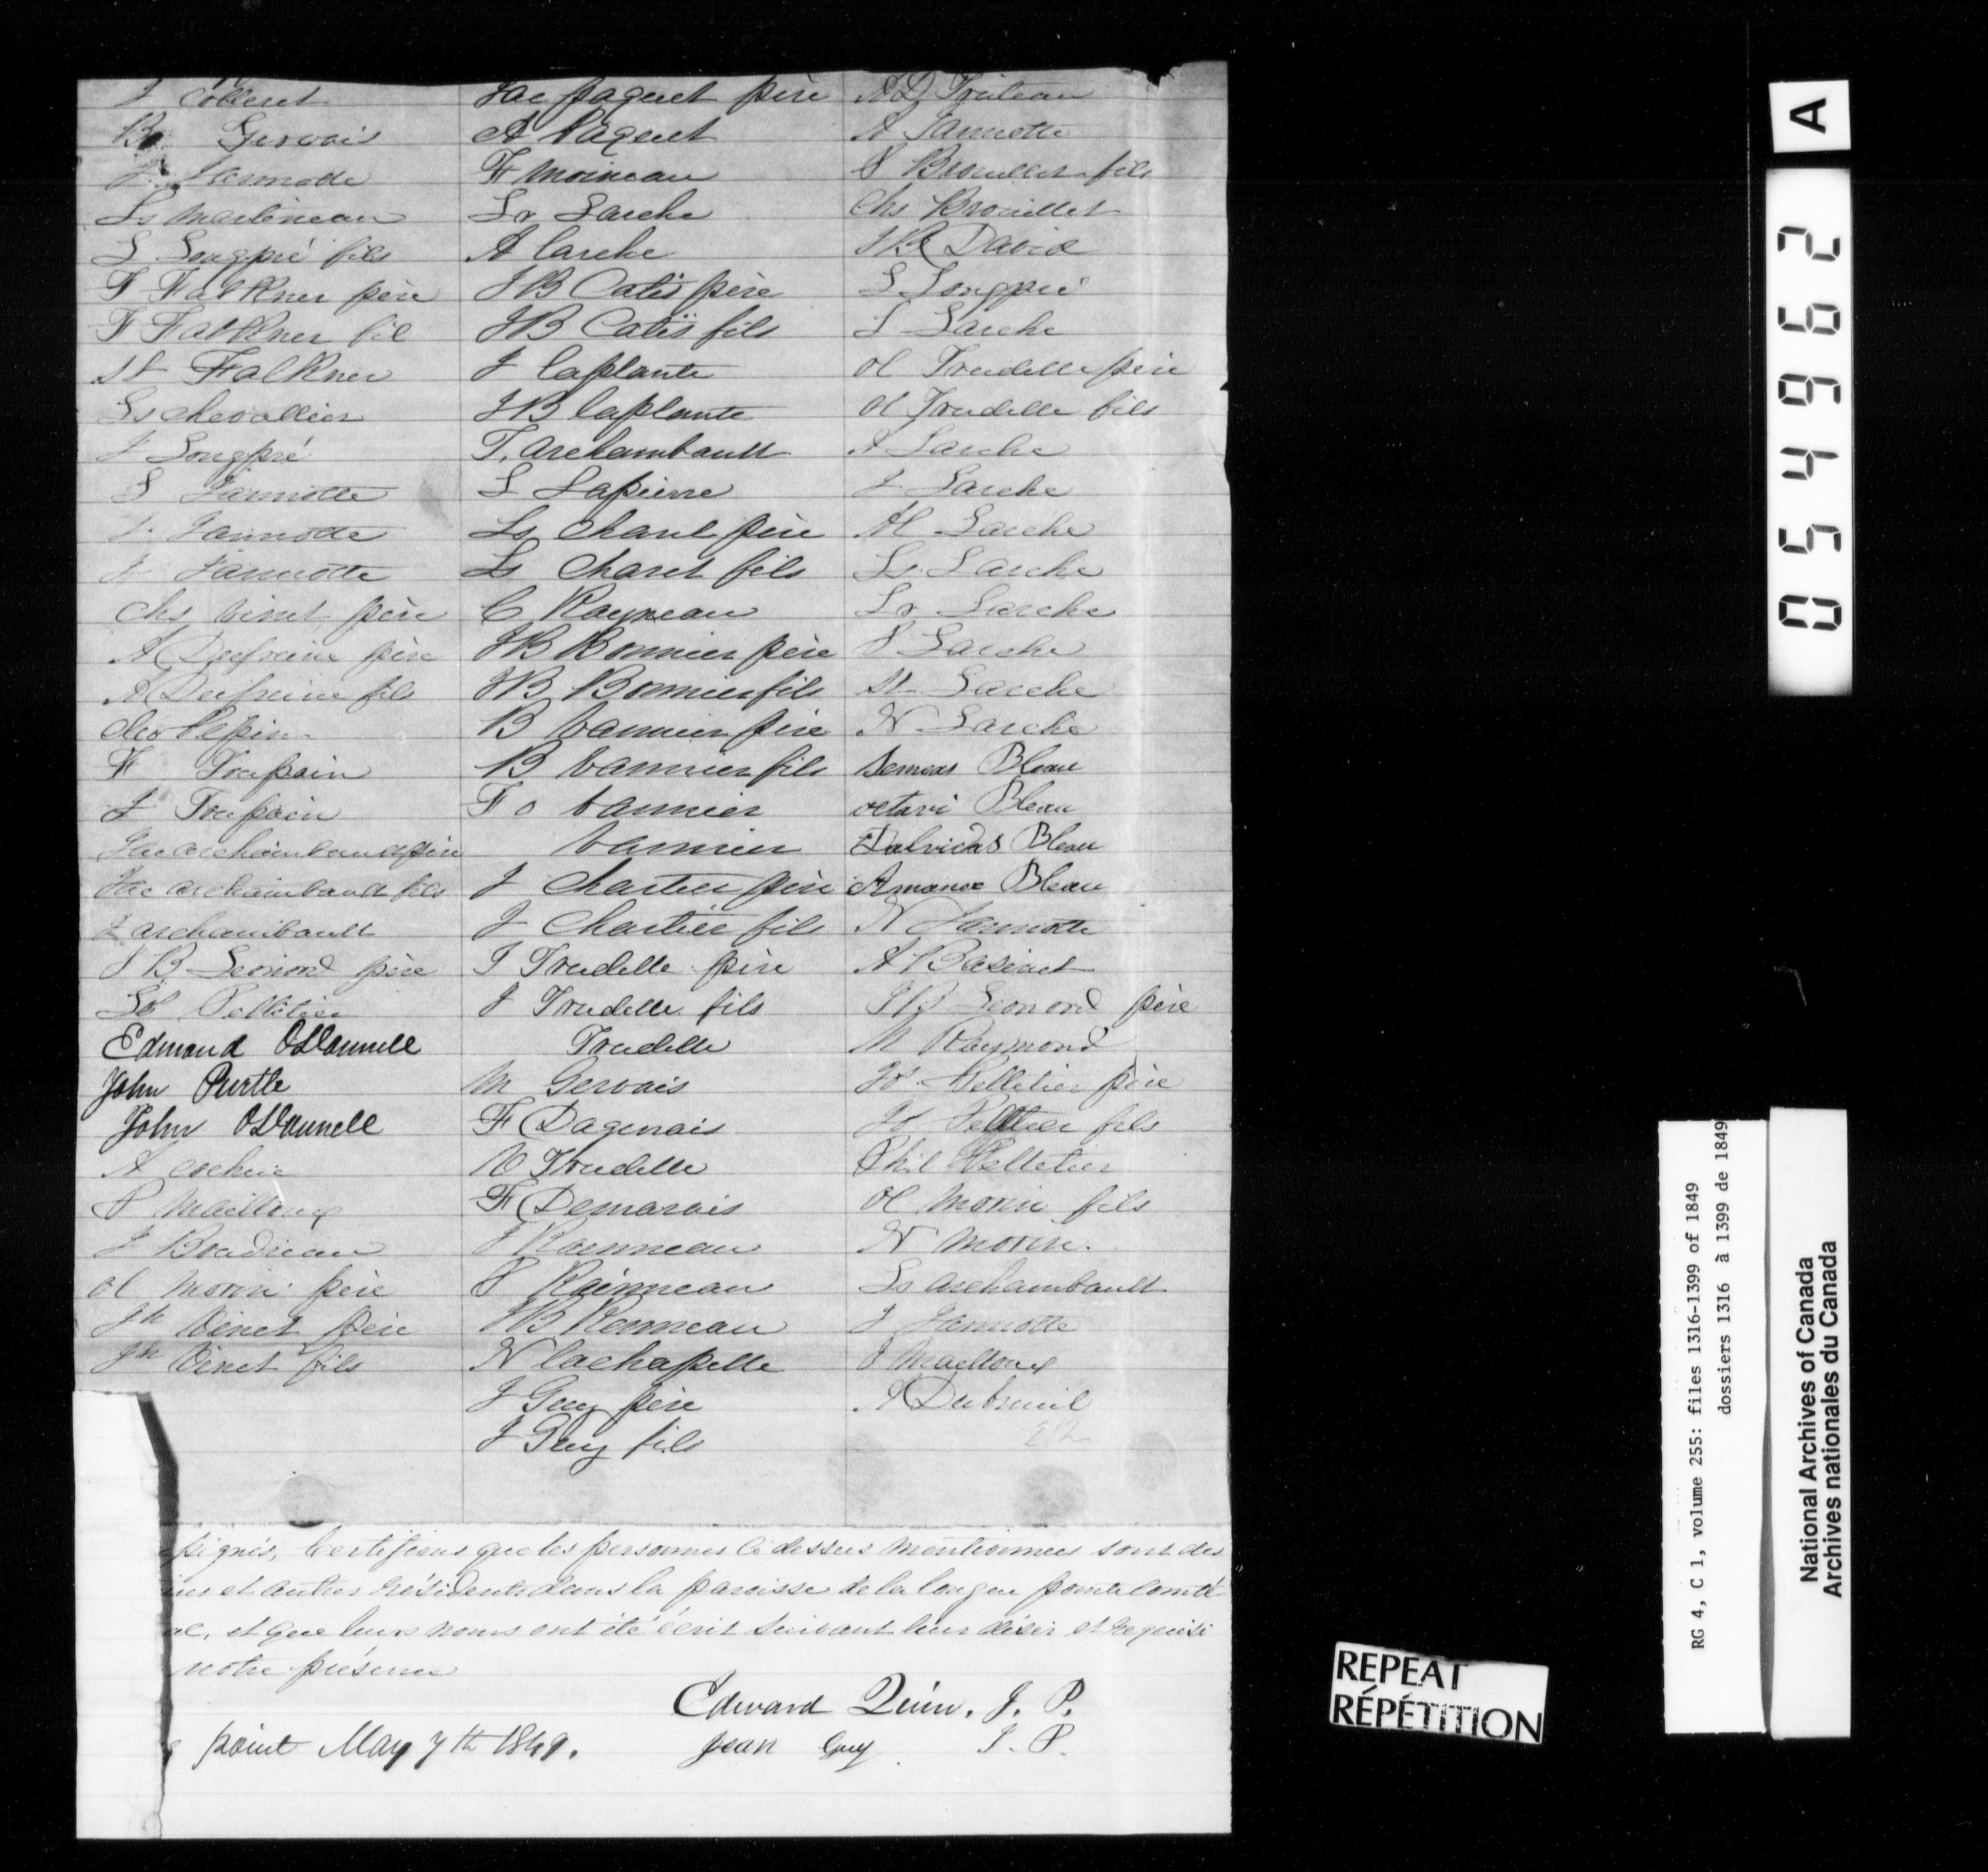 J Colleret
B Gervais
J Jannotte
Ls Martineau
L Longpré fils
F Falkner père
F Falkner fil
St Falkner
Ls chevallier
J Longpré
L Jannotte
J Jannotte
J Jannotte
chs vinet père
A Dufreine père
A Dufreine fils
Pepin
F Toupain
J Toupain
Jac archambault père
Jac archambault fils
J archambault
J B Leonord père
Pelletier
Edmund O'Donnell
John Purtle
John O'Donnell
A cochue
P Mailloux
J Boudreau
ol morin père
Jh Vinet père
Jh Vinet fils
Jac paquet père
A Paquet
F moineau
Lr Larche
A Larche
JB Catis père
JB Catis fils
J laplante
JB laplante
T. archambault
L Lapierre
Ls charet père
Ls Charet fils
C Rayneau
JB Bonnier père
JB Bonnier fils
B vannier père
B vannier fils
F o vannier
vannier
J Chartier père
J Chartier fils
J Trudelle père
J Trudelle fils
Trudelle
M Gervais
F Dagenais
V Trudelle
F Demarais
J Rainneau
P Rainneau
JB Renneau
N lachapelle
J Guy père
J Guy fils
A D Truteau
A Jannotte
P Brouillet fils
Chs Brouillet
J B David
L Longpré
L Larche
ol Trudelle père
ol Trudelle fils
A Larche
J Larche
M Larche
Ls Larche
Lr Larche
P Larche
St Larche
N Larche
Bleau
octavi Bleau
Dalvidas Bleau
Amance Bleau
N Jannotte
A Basinet
J B Leonord père
M Raymond
Jo Pelletier père
Jo Pelltier fils
Phil Pelletier
ol morin fils
N morin.
Ls archambault
J Jannotte
J Mailloux
A Dubreuil
212
signés, Certifions que les personnes ci dessus mentionnees sont des
et autres résidents dans la paroisse de la longue pointe comté
et que leurs noms ont été écrit suivant leur désir et requisi
notre présence
Edward Quin. J. P.
point May 7th 1849.
Jean Guy J. P.
A
054962
RG 4, C 1, volume 255: files 1316-1399 of 1849
dossiers 1316 à 1399 de 1849
National Archives of Canada
Archives nationales du Canada
REPEAT
RÉPÉTITION